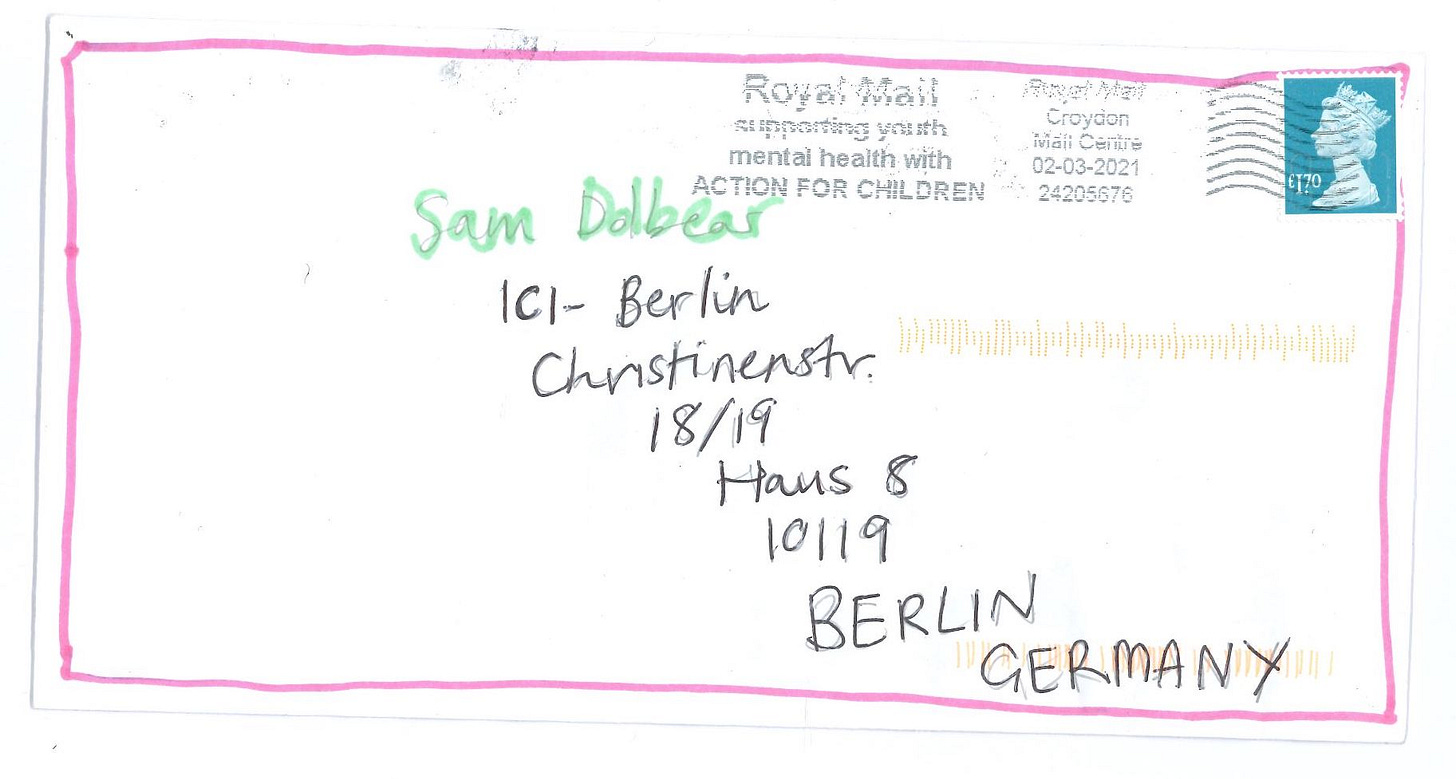 Royal Mail
supporting youth
mental health with
ACTION FOR CHILDREN
Royal Mail
Croydon
Mail Centre
02-03-2021
24205676
£1.70
Sam Dolbear
ICI- Berlin
Christinenstr.
18/19
Haus 8
10119
BERLIN
GERMANY